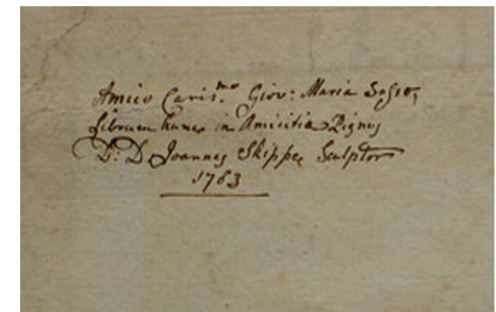 Amico Caris.mo Giov: Maria Sasso,
Librum hunc in Amicitiæ Pignus
D: D. Joannes Skippe Sculptor
1783